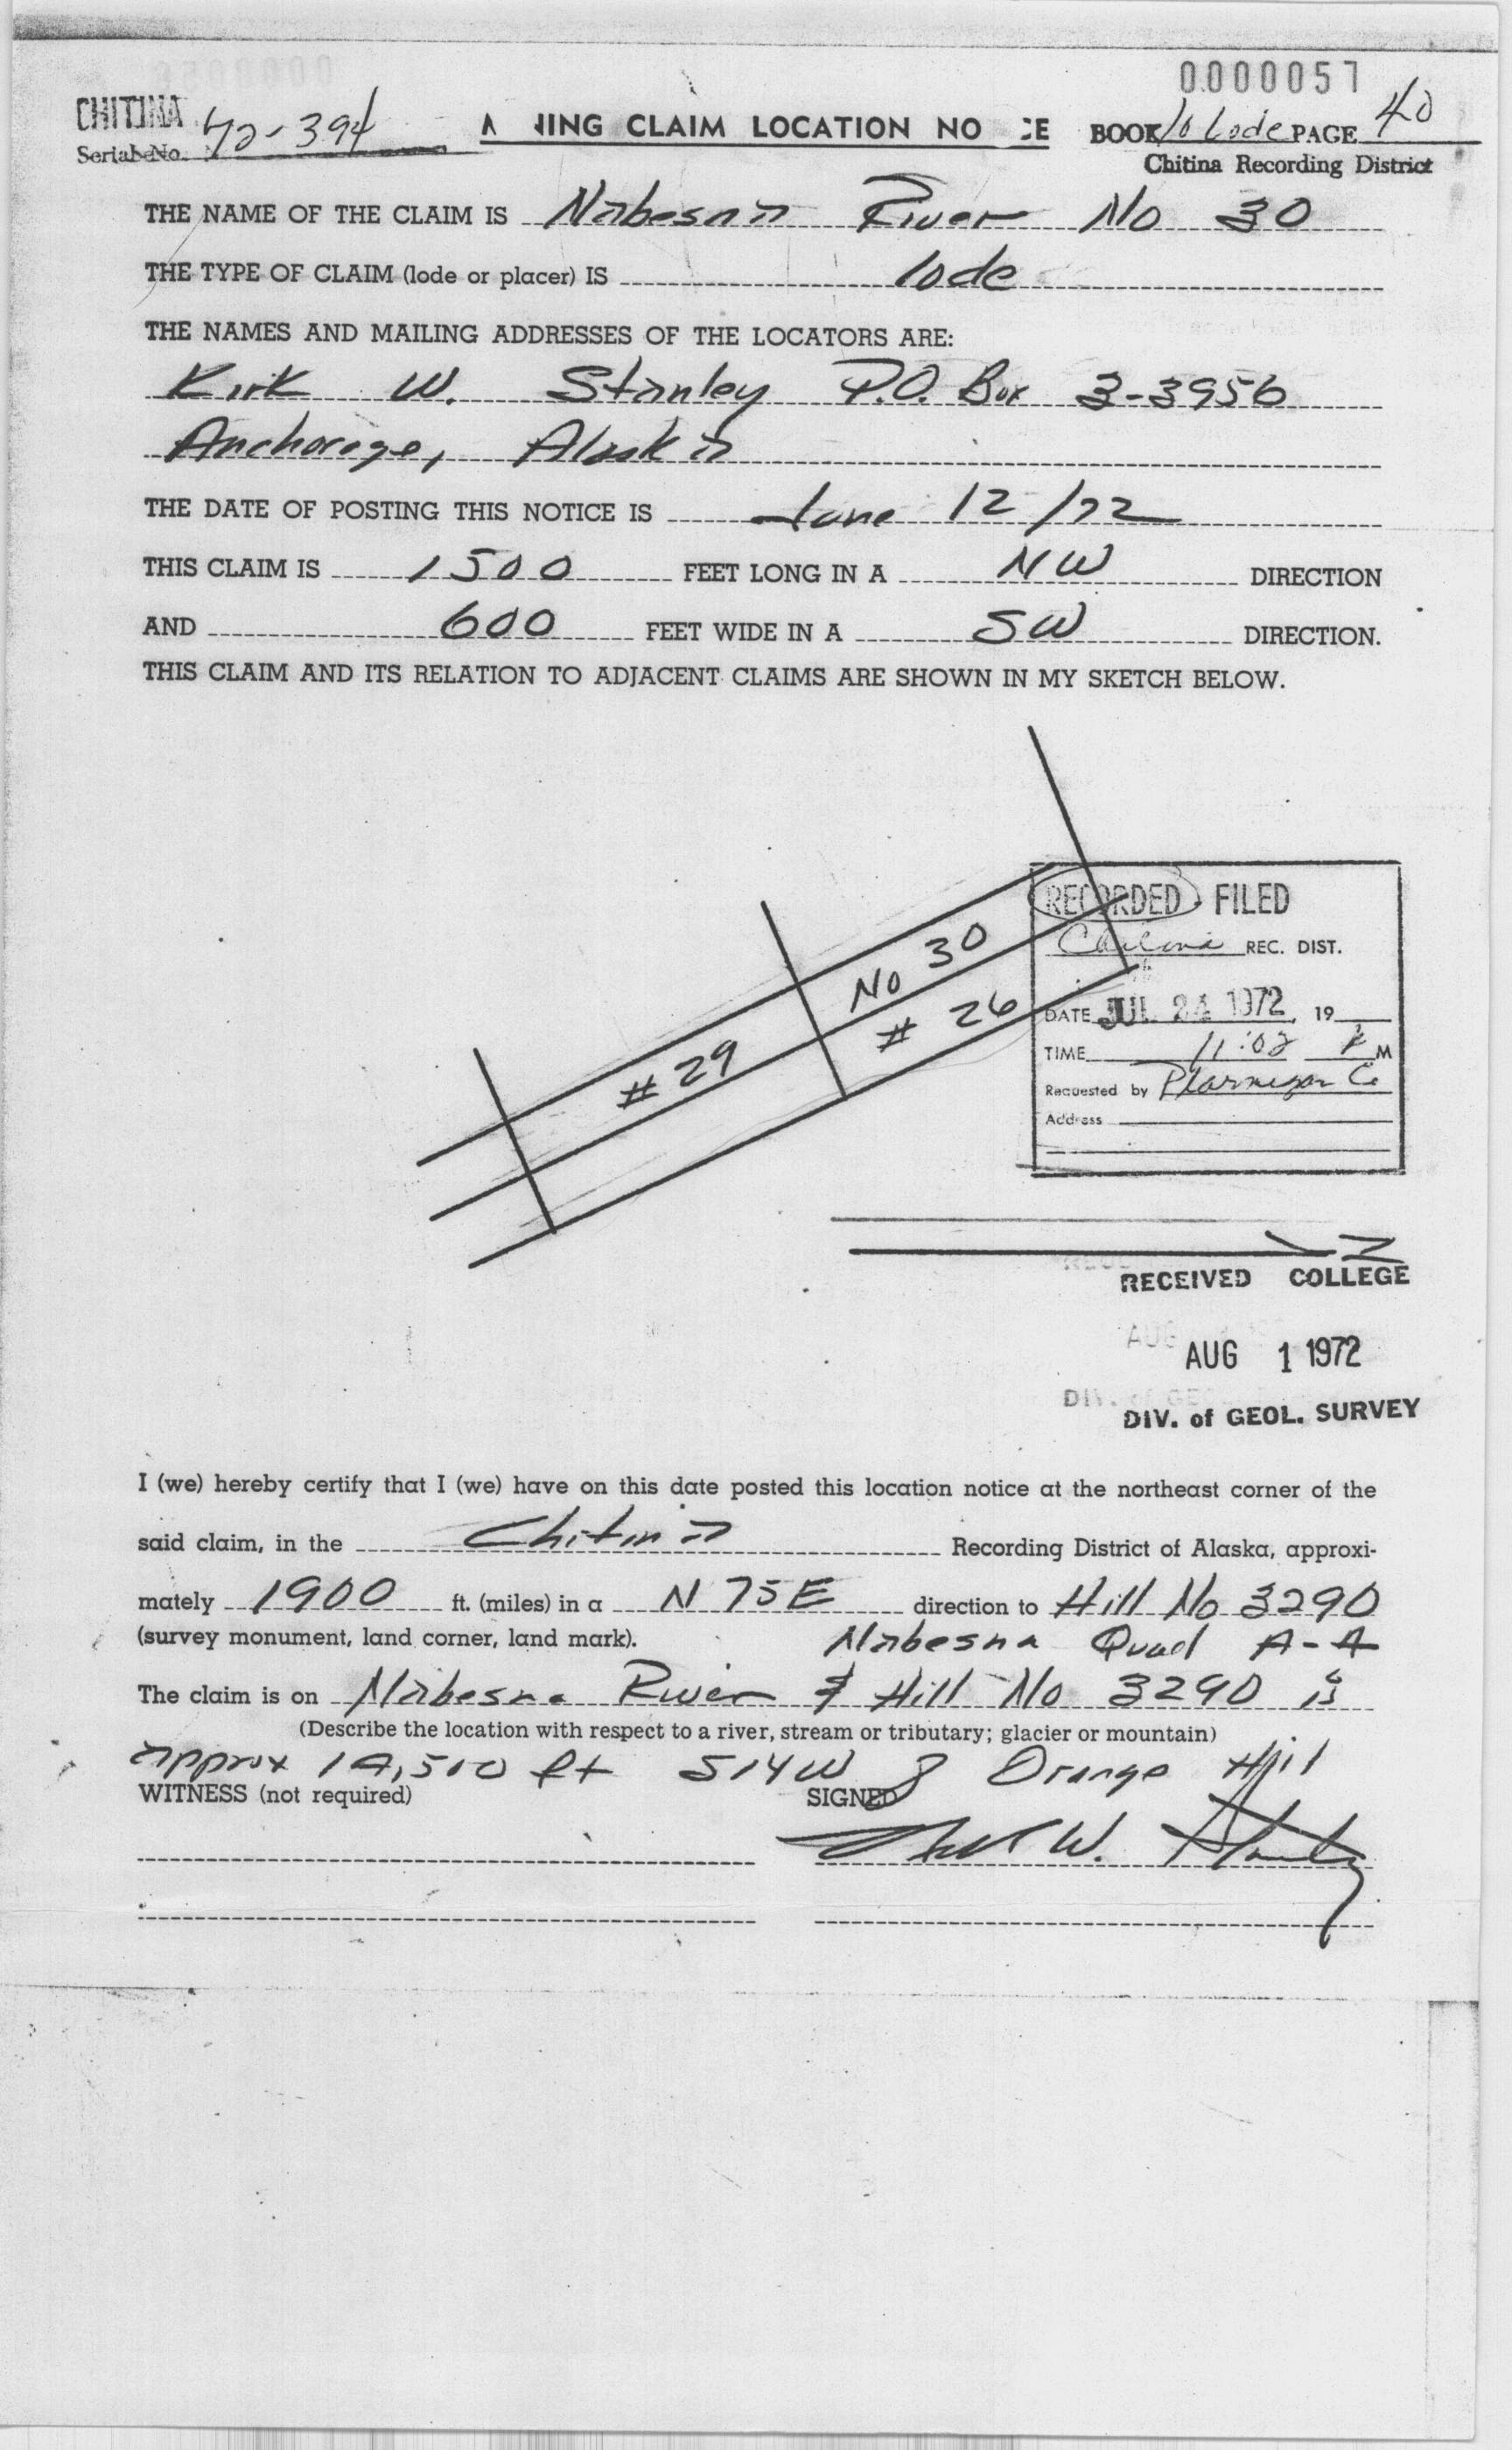 0000057
CHITINA 72-394
Serial No.
NING CLAIM LOCATION NO CE
BOOK 10 Lode PAGE 40
Chitina Recording District
THE NAME OF THE CLAIM IS Nabesna River No 30
THE TYPE OF CLAIM (lode or placer) IS lode
THE NAMES AND MAILING ADDRESSES OF THE LOCATORS ARE:
Kirk W. Stanley P.O. Box 3-3956
Anchorage, Alaska
THE DATE OF POSTING THIS NOTICE IS June 12/72
THIS CLAIM IS 1500 FEET LONG IN A NW DIRECTION
AND 600 FEET WIDE IN A SW DIRECTION.
THIS CLAIM AND ITS RELATION TO ADJACENT CLAIMS ARE SHOWN IN MY SKETCH BELOW.
RECORDED · FILED
Chitina REC. DIST.
No 30
# 26
# 29
DATE JUL 24 1972, 19
TIME 11:02 M
Requested by Ptarmigan Co
Address
N
RECEIVED COLLEGE
AUG 1 1972
DIV. of GEOL. SURVEY
I (we) hereby certify that I (we) have on this date posted this location notice at the northeast corner of the
said claim, in the Chitina Recording District of Alaska, approxi-
mately 1900 ft. (miles) in a N 75 E direction to Hill No 3290
(survey monument, land corner, land mark). Nabesna Quad A-4
The claim is on Nabesna River & Hill No 3290 is
(Describe the location with respect to a river, stream or tributary; glacier or mountain)
approx 19,500 ft S14W of Orange Hill
WITNESS (not required) SIGNED
Kirk W. Stanley